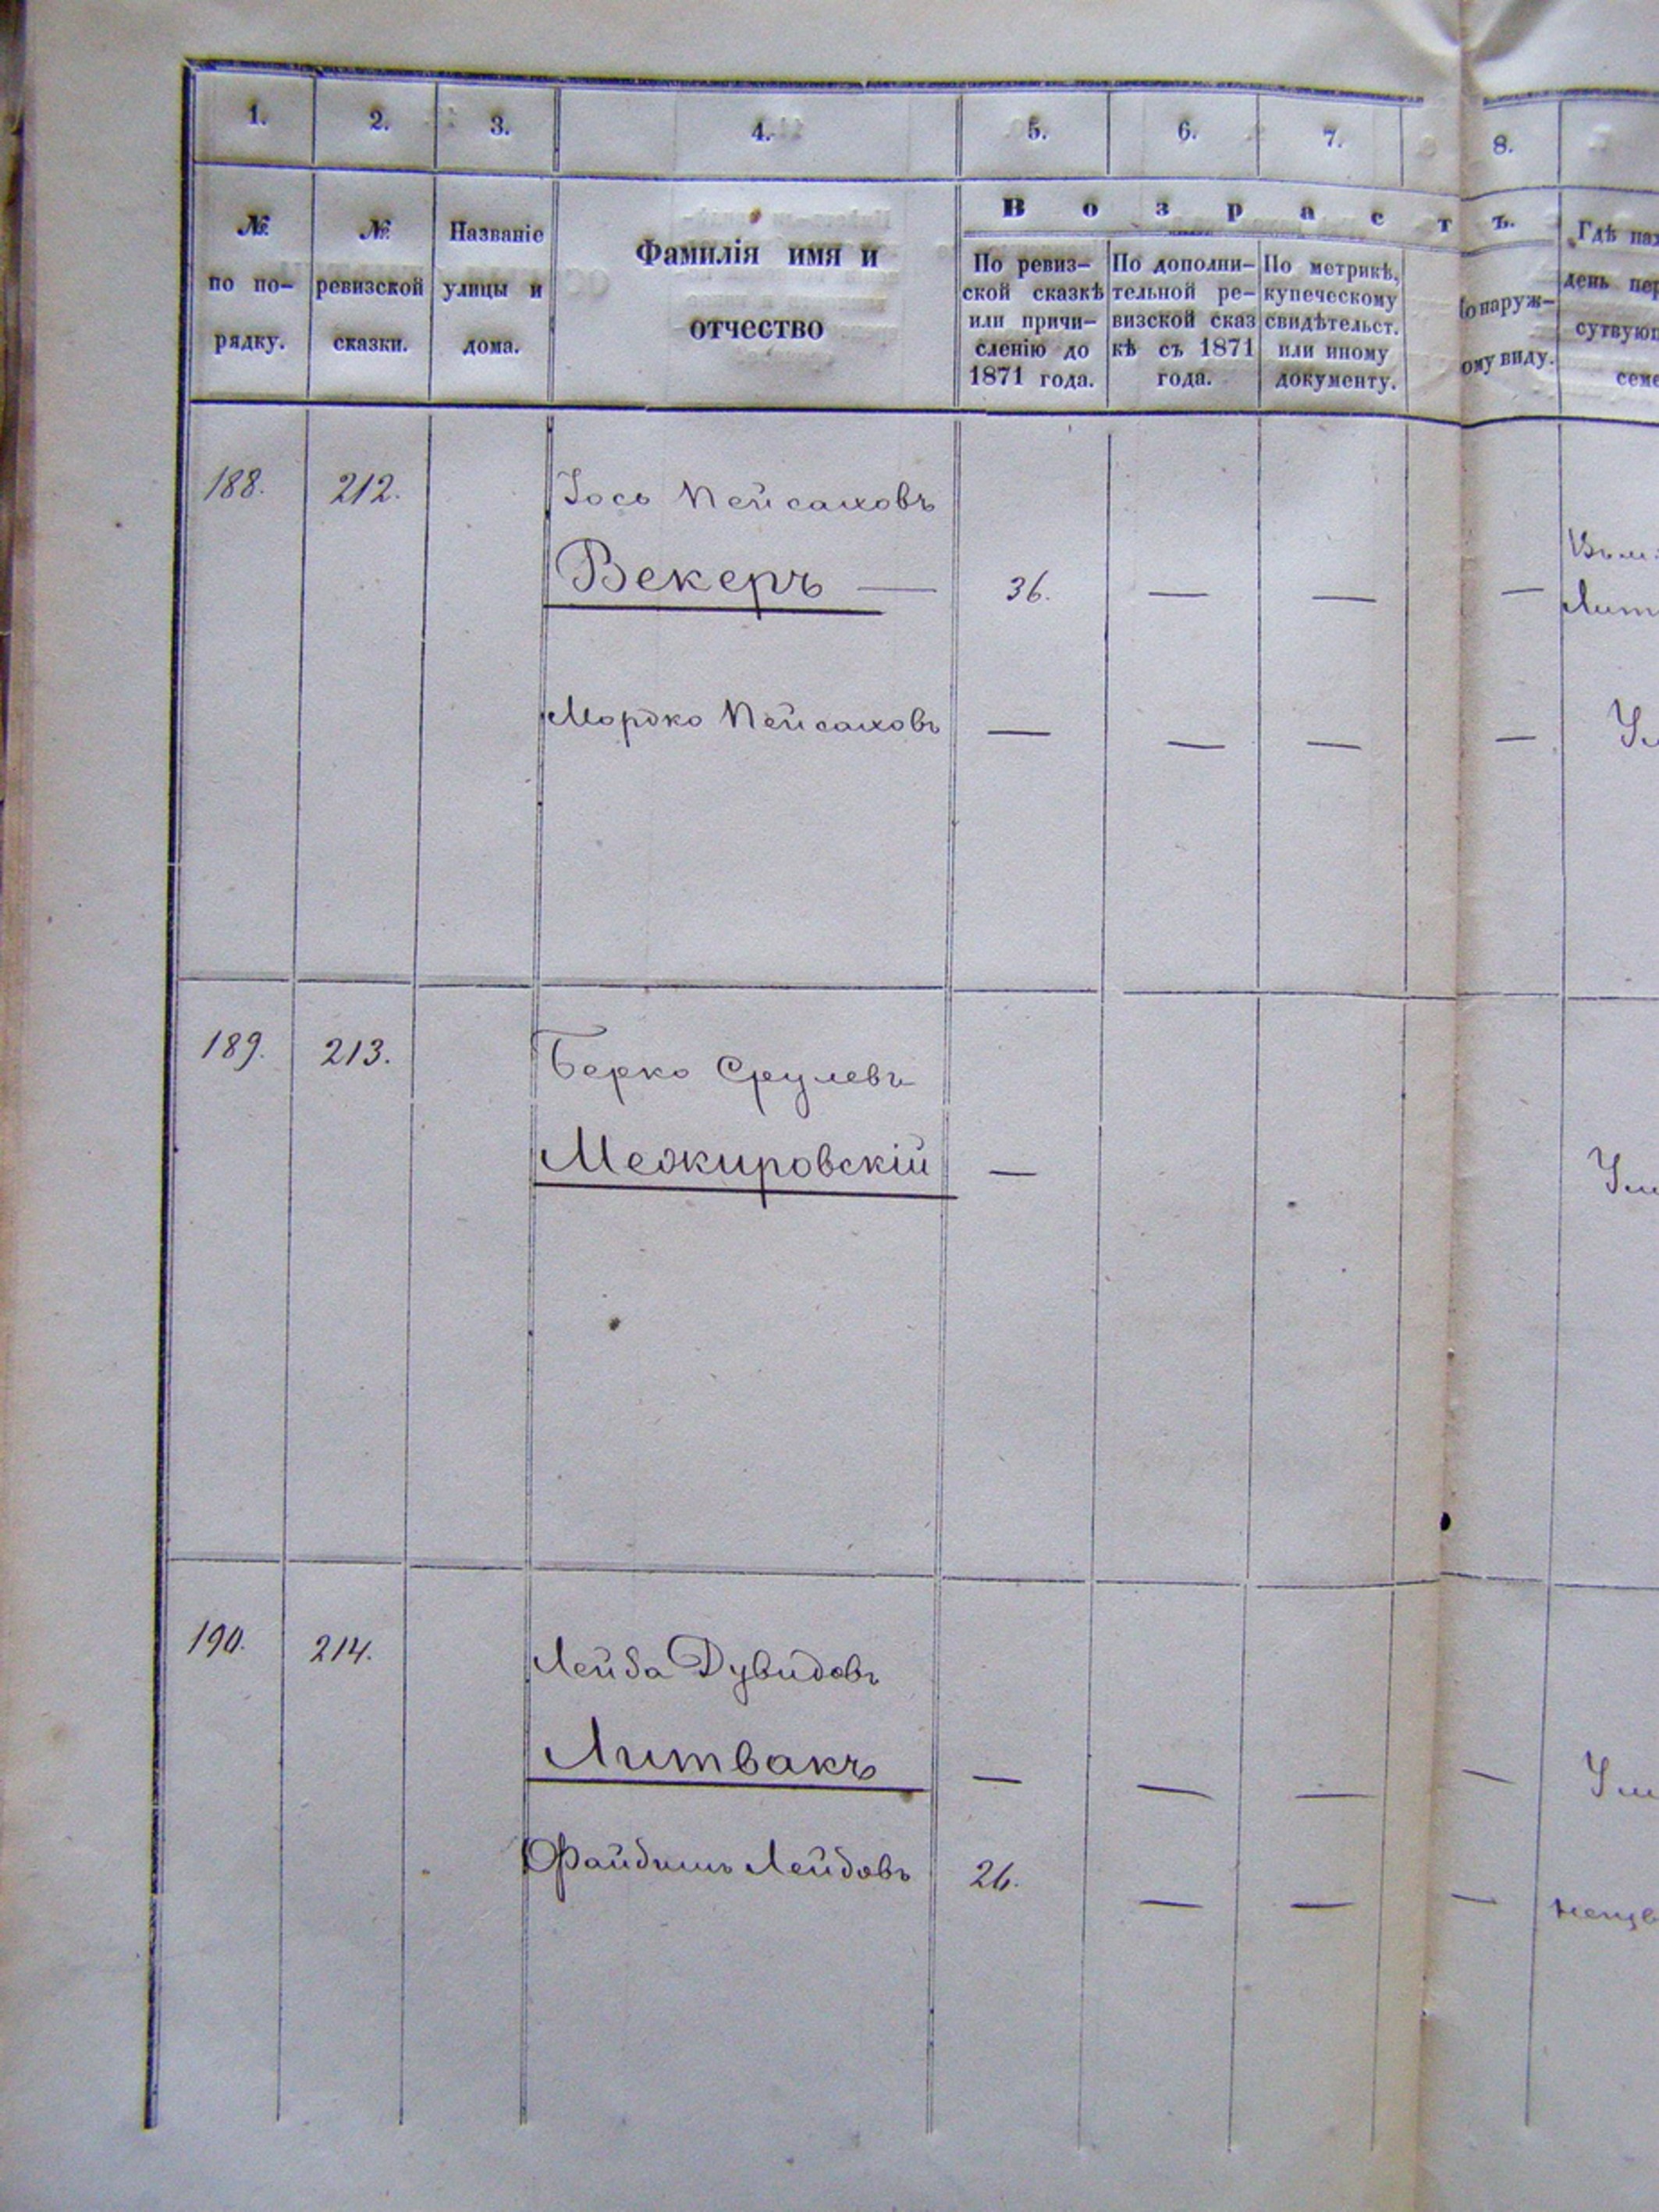 1. 2. 3. 4. 5. 6. 7. 8.
№ по порядку.
№ ревизской сказки.
Названіе улицы и дома.
Фамилія имя и
отчество
Возрастъ.
По ревиз-
ской сказкѣ
или причи-
сленію до
1871 года.
По дополни-
тельной ре-
визской сказ
кѣ съ 1871
года.
По метрикѣ,
купеческому
свидѣтельст.
или иному
документу.
наруж-
ому виду.
Гдѣ
день
188. 212. Іось Пейсаховъ
Векеръ — 36. — — —
Мордко Пейсаховъ — — — —
189. 213. Берко Срулевъ
Межировскій —
190. 214. Лейба Дувидовъ
Литвакъ — — — —
Файбишъ Лейбовъ 26. — — —